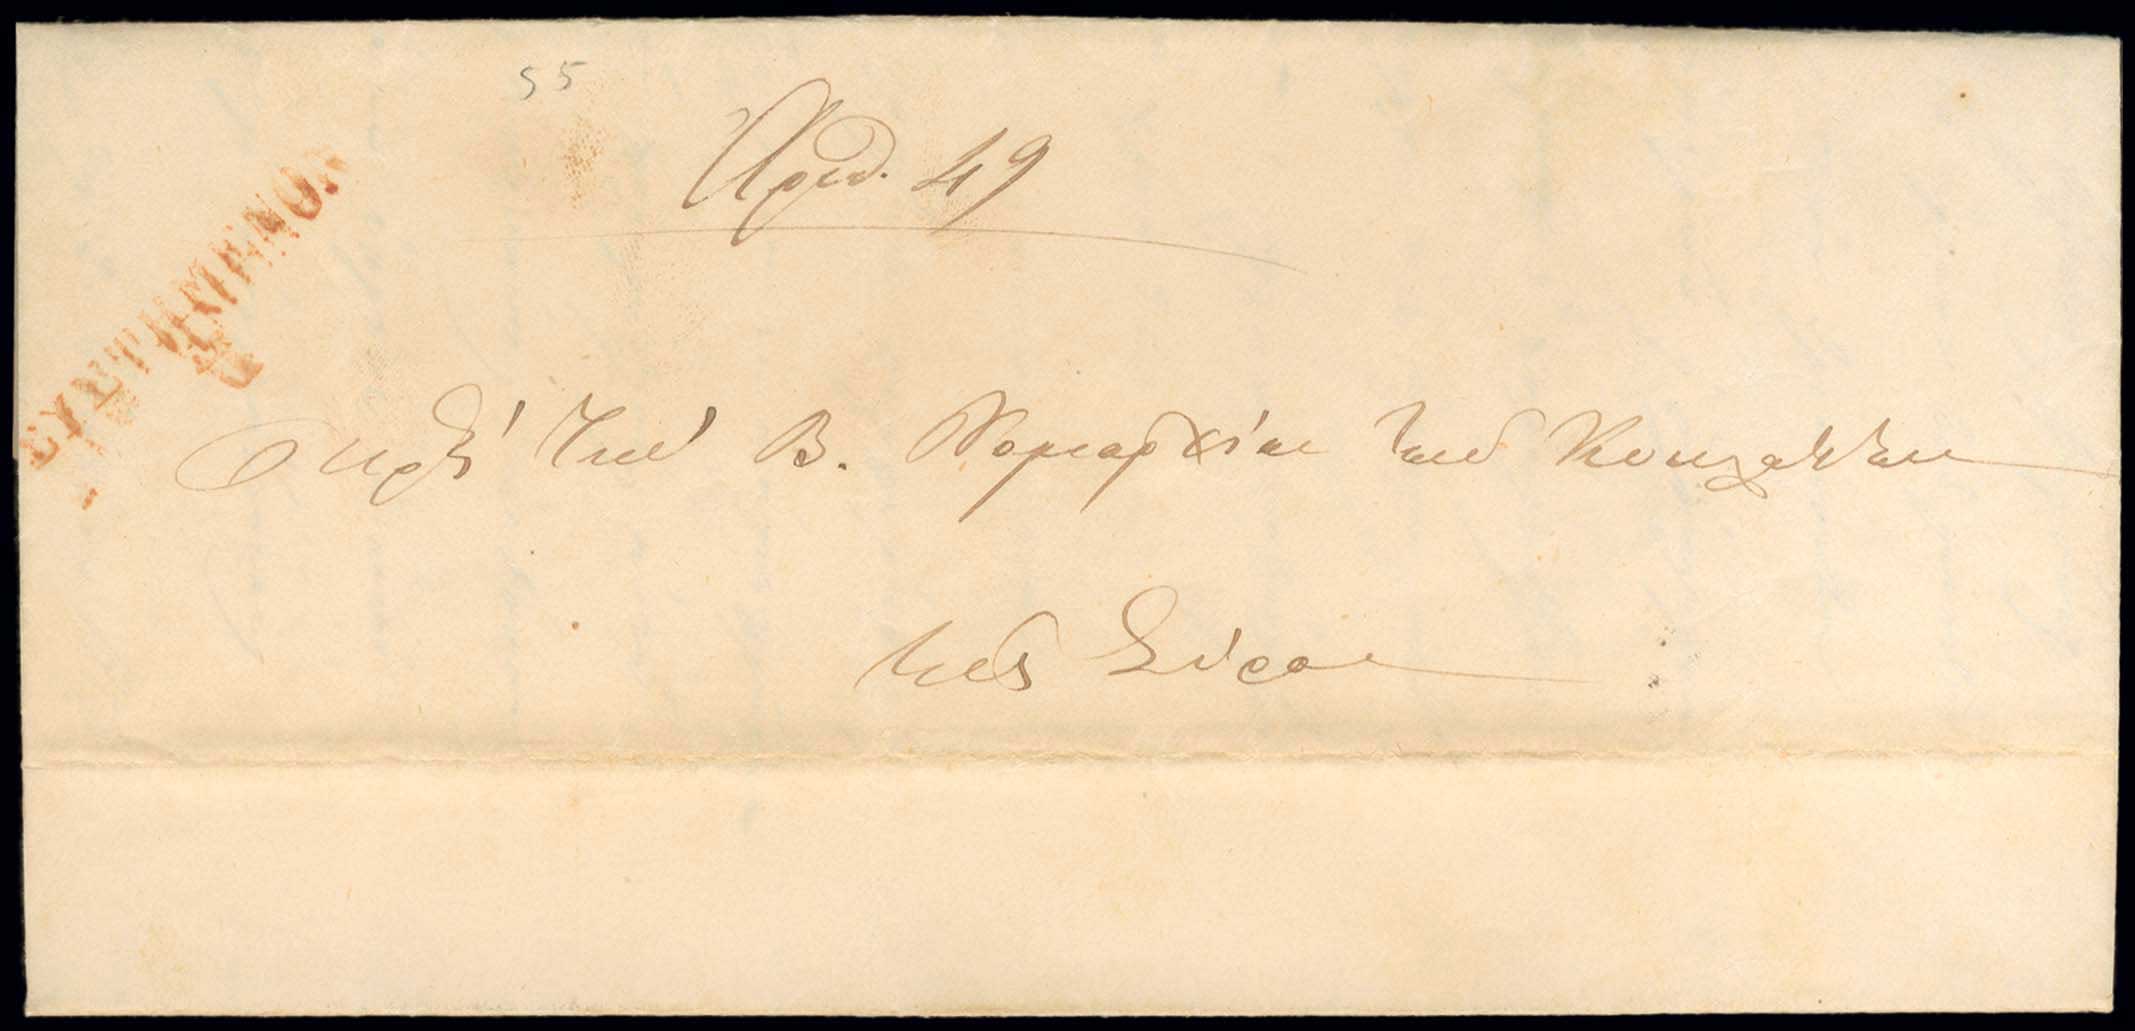 55
Αριθ. 49
ΣΥΣΤΗΜΕΝΟΝ
Πρὸς τὴν Β. Νομαρχίαν των Κυκλάδων
εἰς Σύρον